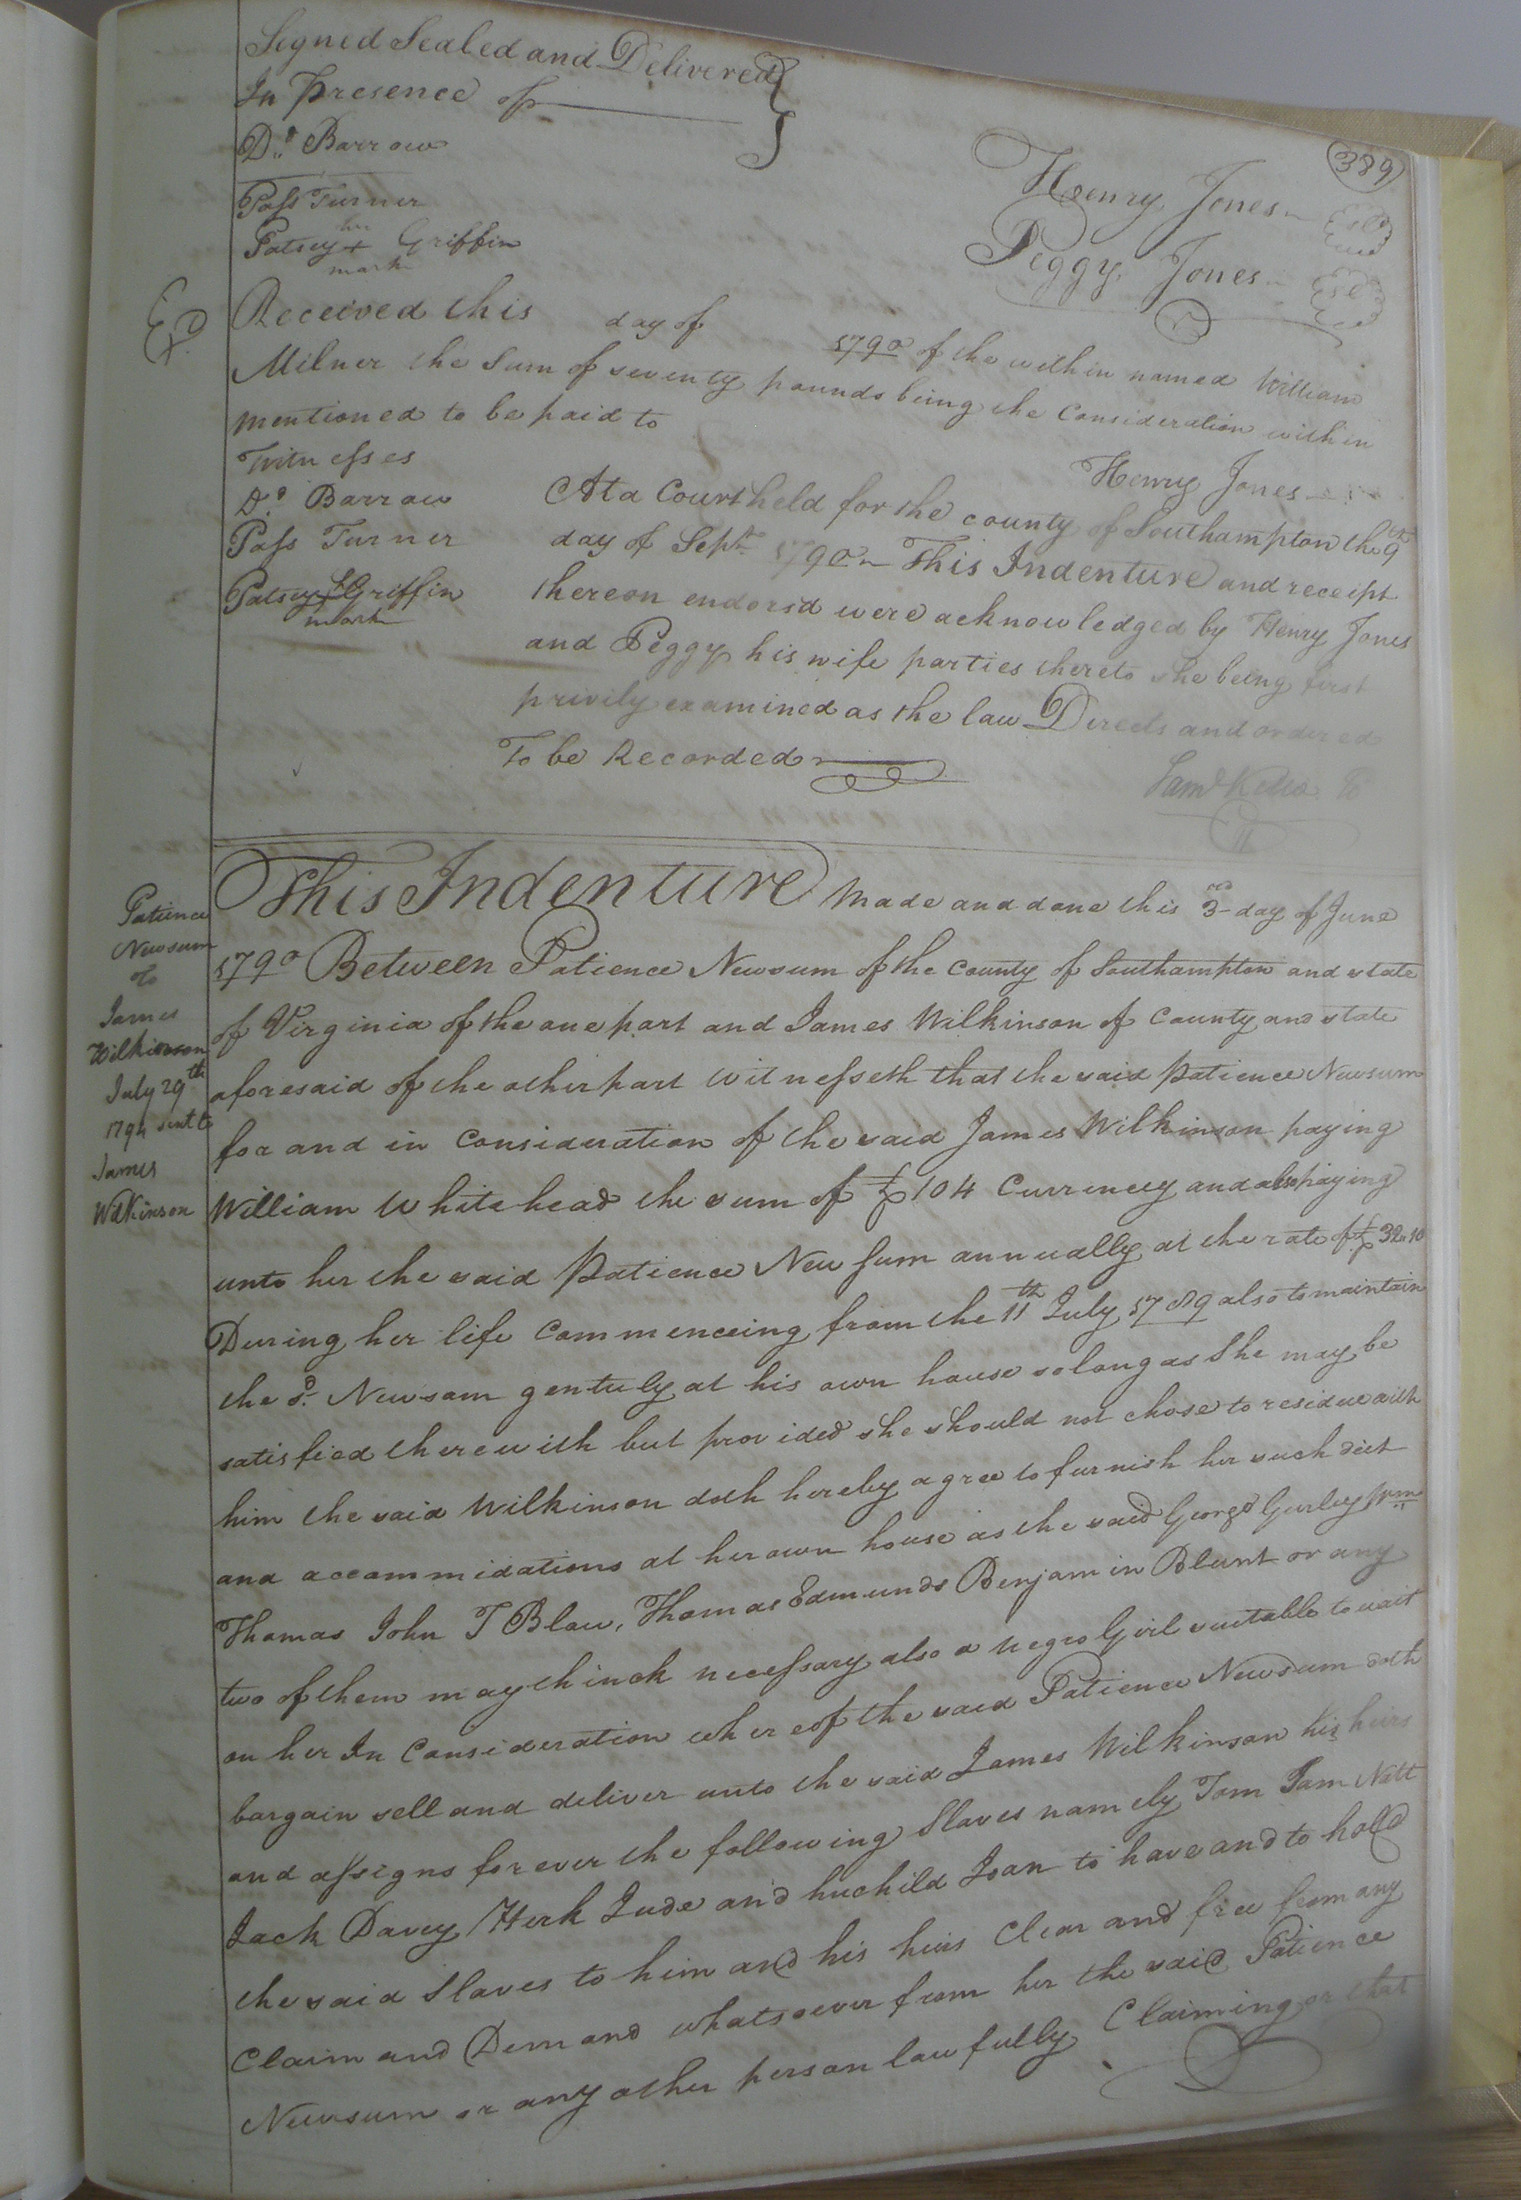 389
Signed Sealed and Delivered
In Presence of
Dd. Barrow
Pass Turner
her
Patsey + Griffin
mark
Henry Jones
Peggy Jones
Exd.
Received this day of 1790 of the within named William
Milner the Sum of seventy pounds being the Consideration within
mentioned to be paid to
Henry Jones
Witnesses
Dd. Barrow
Pass Turner
Patsey + Griffin
mark
At a Court held for the county of Southampton the 9th
day of Sept. 1790 This Indenture and receipt
thereon endorsd were acknowledged by Henry Jones
and Peggy his wife parties thereto she being first
privily examined as the law Directs and ordered
To be Recorded
Saml Kello
Patience
Newsum
to
James
Wilkinson
July 29th
1794 sent to
James
Wilkinson
This Indenture Made and done this 3rd day of June
1790 Between Patience Newsum of the County of Southampton and state
of Virginia of the one part and James Wilkinson of County and state
aforesaid of the other part Witnesseth that the said Patience Newsum
for and in Consideration of the said James Wilkinson paying
William Whitehead the sum of £104 Currency and also paying
unto her the said Patience Newsum annually at the rate of £32.10
During her life Commenceing from the 11th July 1789 also to maintain
the sd. Newsam gentuly at his own house so long as She may be
satisfied therewith but provided she should not chose to residue with
him the said Wilkinson doth hereby agree to furnish her such diet
and accommidations at her own house as the said George Gurley Wm
Thomas John T Blow, Thomas Edmunds Benjamin Blunt or any
two of them may think necessary also a negro Girl suitable to wait
on her In Consideration whereof the said Patience Newsum doth
bargain sell and deliver unto the said James Wilkinson his heirs
and assigns forever the following Slaves namely Tom Sam Natt
Jack Davey Herk Jude and her child Joan to have and to hold
the said Slaves to him and his heirs Clear and free from any
Claim and Demand whatsoever from her the said Patience
Newsum or any other person lawfully Claiming or that